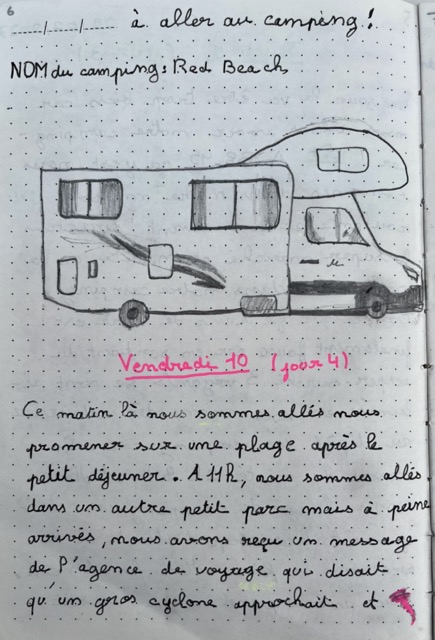 6
...../...../..... à aller au camping !
NOM du camping : Red Beach
Vendredi 10 (jour 4)
Ce matin là nous sommes allés nous
promener sur une plage après le
petit déjeuner. A 11h, nous sommes allés
dans un autre petit parc mais à peine
arrivés, nous avons reçu un message
de l'agence de voyage qui disait
qu'un gros cyclone approchait et